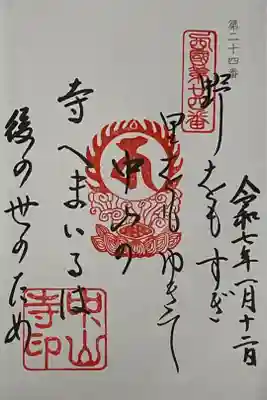 第二十四番
西國第廿四番
令和七年一月十二日
野をもすぎ
里をもゆきて
中山の
寺へまいるは
後の世のため
中山寺印